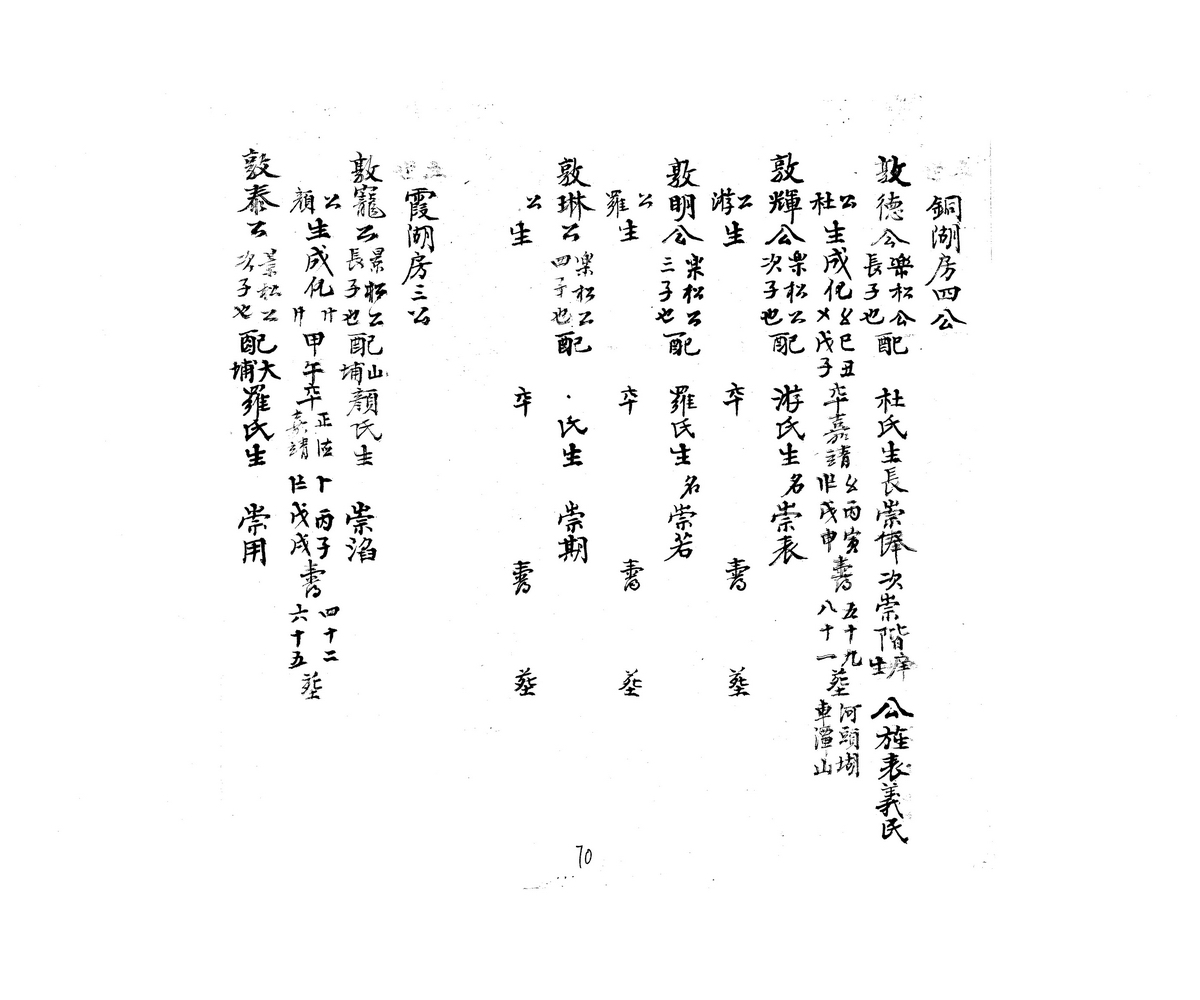 銅湖房四公
敦德公樂松公長子也配 杜氏生長崇俸次崇階庠生 公旌表義民
公杜生成化〤〥己丑戊子卒嘉靖丙寅戊申壽五十九八十一葬河頭堋車潭山
敦輝公樂松公次子也配 游氏生名崇表
公游生 卒 壽 葬
敦明公樂松公三子也配 羅氏生名崇若
公羅生 卒 壽 葬
敦琳公樂松公四子也配 氏生 崇期
公生 卒 壽 葬
霞湖房三公
敦寵公景松公長子也配山埔顏氏生 崇滔
公顏生成化甲午卒正德嘉靖丙子戊戌壽四十二六十五葬
敦泰公景松公次子也配大埔羅氏生 崇用
70